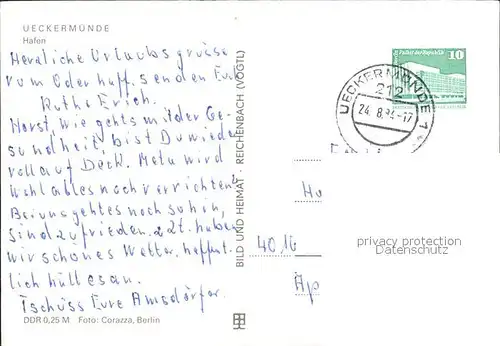 UECKERMÜNDE
Hafen
Herzliche Urlaubsgrüsse
vom Oderhaff senden Euch
Ruth u Erich.
Horst, wie gehts mit der Ge-
sundheit, bist Du wieder
voll auf Deck. Meta wird
wohl alles noch verrichten?
Bei uns geht es noch so hin,
sind zufrieden. z Zt. haben
wir schönes Wetter. hoffent-
lich hält es an.
Tschüss Eure Amsdörfer.
DDR 0,25 M Foto: Corazza, Berlin
BILD UND HEIMAT · REICHENBACH (VOGTL)
Palast der Republik 10
UECKERMÜNDE 1
212
24.8.84-17
Ha
4016
Äp
privacy protection
Datenschutz